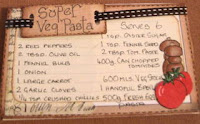 Super
Veg Pasta
Serves 6
2 Red Peppers
2 tbsp. Olive Oil
1 Fennel Bulb
1 Onion
1 Large Carrot
2 Garlic Cloves
½ tsp Crushed Chillies
1 tsp. Caster Sugar
1 tsp. Fennel Seeds
2 tbsp. Tom. Paste
400g Can Chopped
Tomatoes
600mls Veg Stock
1 Handful Basil
500g Fresh